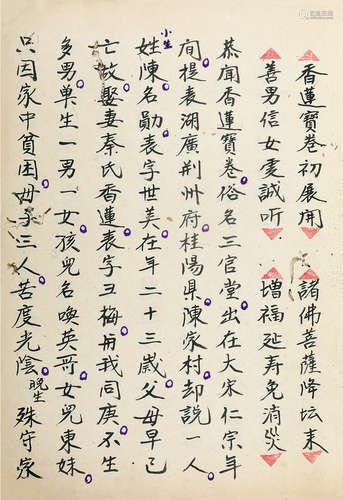 香蓮寶卷初展開　諸佛菩薩降坛来
善男信女虔誠听　增福延寿免消災
恭闻香蓮寶卷俗名三官堂出在大宋仁宗年
间提表湖廣荆州府桂陽県陳家村却說一人
姓陳名勋表字世美在年二十三歲父母早已
小生
亡故娶妻秦氏香蓮表字丑梅冊我同庚不生
多男单生一男一女孩兒名喚英哥女兒東妹
只因家中貧困母子三人苦度光陰殊守家
晚生